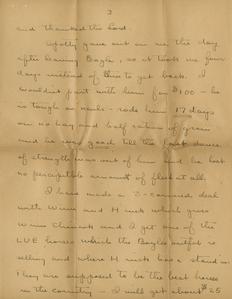 3
and thanked the Lord.
Wolly gave out on me the day
after leaving Bogle, so it took me four
days instead of two to get back. I
wouldn't part with him for $100 - he
is tough as nails - rode him 17 days
on no hay and half ration of grain
and he was good till the last ounce
of strength was out of him and he lost
no perceptible amount of flesh at all.
I have made a 3-cornered deal
with Winn and H which gives
Winn and I get one of the
LUE horses which the Boyle outfit is
selling and where H has a stand in.
They are supposed to be the best horses
in the country - I will get about $25